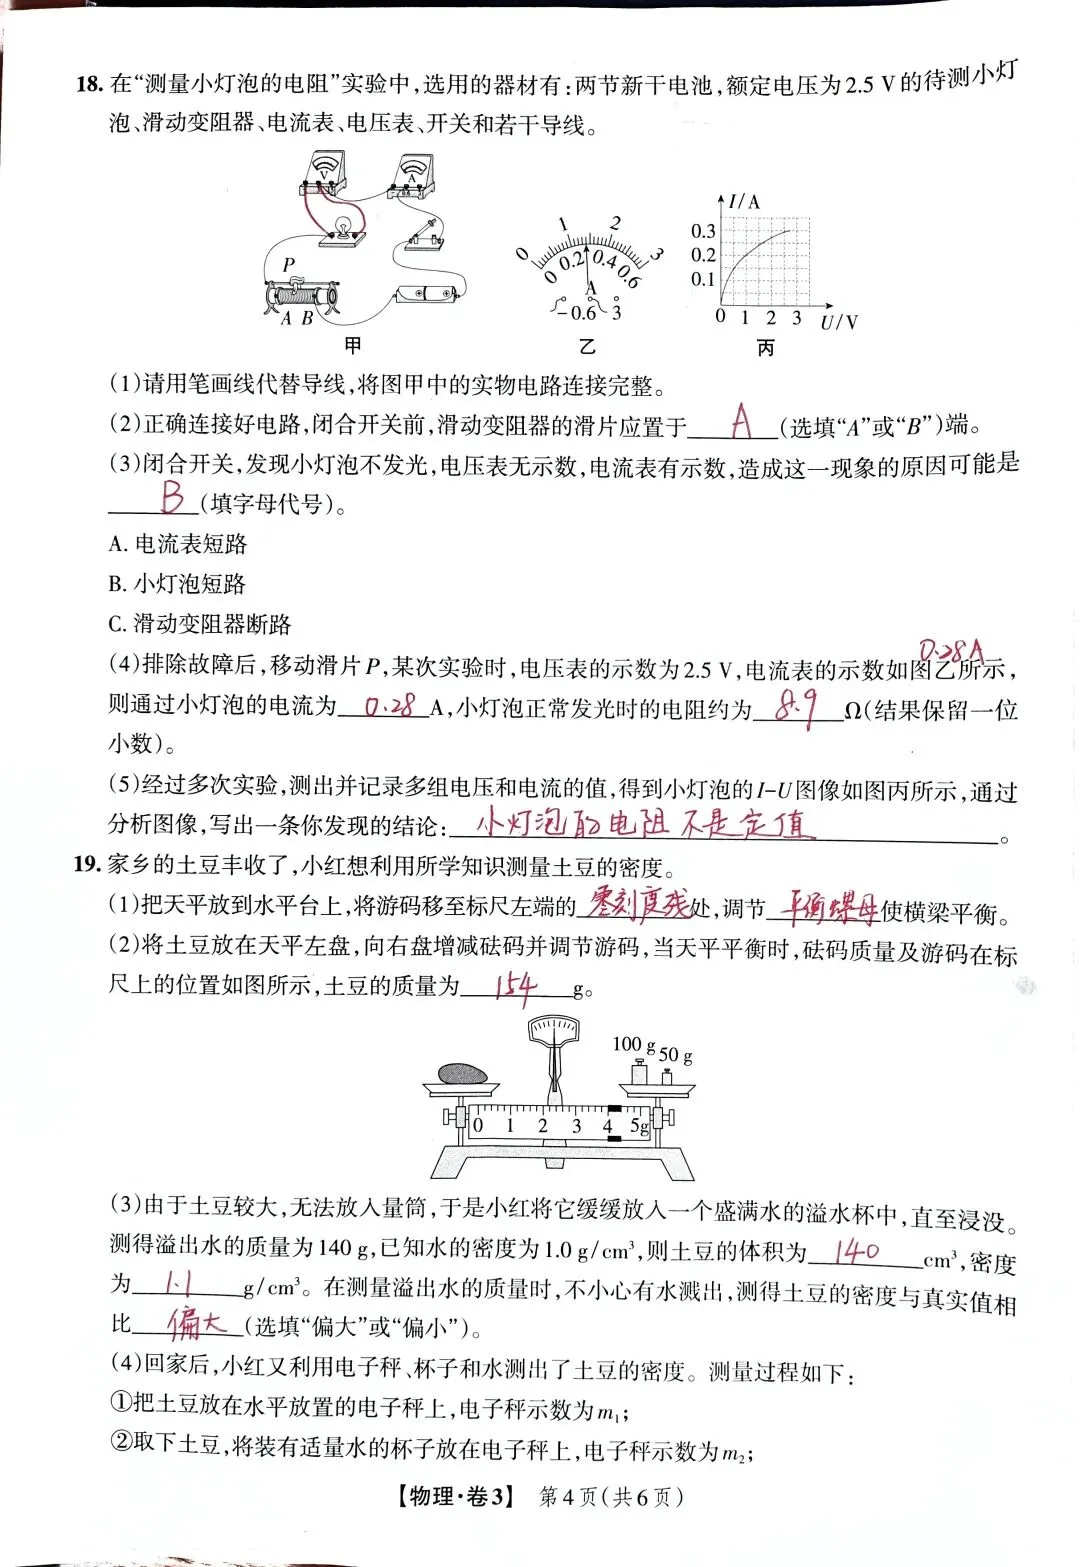 18. 在“测量小灯泡的电阻”实验中,选用的器材有:两节新干电池,额定电压为2.5 V的待测小灯
泡、滑动变阻器、电流表、电压表、开关和若干导线。
V
A
P
A B
甲
0 1 2 3
0 0.2 0.4 0.6
A
- 0.6 3
乙
I/A
0.3
0.2
0.1
0 1 2 3 U/V
丙
(1)请用笔画线代替导线,将图甲中的实物电路连接完整。
(2)正确连接好电路,闭合开关前,滑动变阻器的滑片应置于 A (选填“A”或“B”)端。
(3)闭合开关,发现小灯泡不发光,电压表无示数,电流表有示数,造成这一现象的原因可能是
B (填字母代号)。
A. 电流表短路
B. 小灯泡短路
C. 滑动变阻器断路
0.28A
(4)排除故障后,移动滑片P,某次实验时,电压表的示数为2.5 V,电流表的示数如图乙所示,
则通过小灯泡的电流为 0.28 A,小灯泡正常发光时的电阻约为 8.9 Ω(结果保留一位
小数)。
(5)经过多次实验,测出并记录多组电压和电流的值,得到小灯泡的I-U图像如图丙所示,通过
分析图像,写出一条你发现的结论: 小灯泡的电阻不是定值 。
19. 家乡的土豆丰收了,小红想利用所学知识测量土豆的密度。
(1)把天平放到水平台上,将游码移至标尺左端的 零刻度线 处,调节 平衡螺母 使横梁平衡。
(2)将土豆放在天平左盘,向右盘增减砝码并调节游码,当天平平衡时,砝码质量及游码在标
尺上的位置如图所示,土豆的质量为 154 g。
100 g 50 g
0 1 2 3 4 5g
(3)由于土豆较大,无法放入量筒,于是小红将它缓缓放入一个盛满水的溢水杯中,直至浸没。
测得溢出水的质量为140 g,已知水的密度为1.0 g/cm³,则土豆的体积为 140 cm³,密度
为 1.1 g/cm³。在测量溢出水的质量时,不小心有水溅出,测得土豆的密度与真实值相
比 偏大 (选填“偏大”或“偏小”)。
(4)回家后,小红又利用电子秤、杯子和水测出了土豆的密度。测量过程如下:
①把土豆放在水平放置的电子秤上,电子秤示数为m₁;
②取下土豆,将装有适量水的杯子放在电子秤上,电子秤示数为m₂;
【物理·卷3】 第4页(共6页)